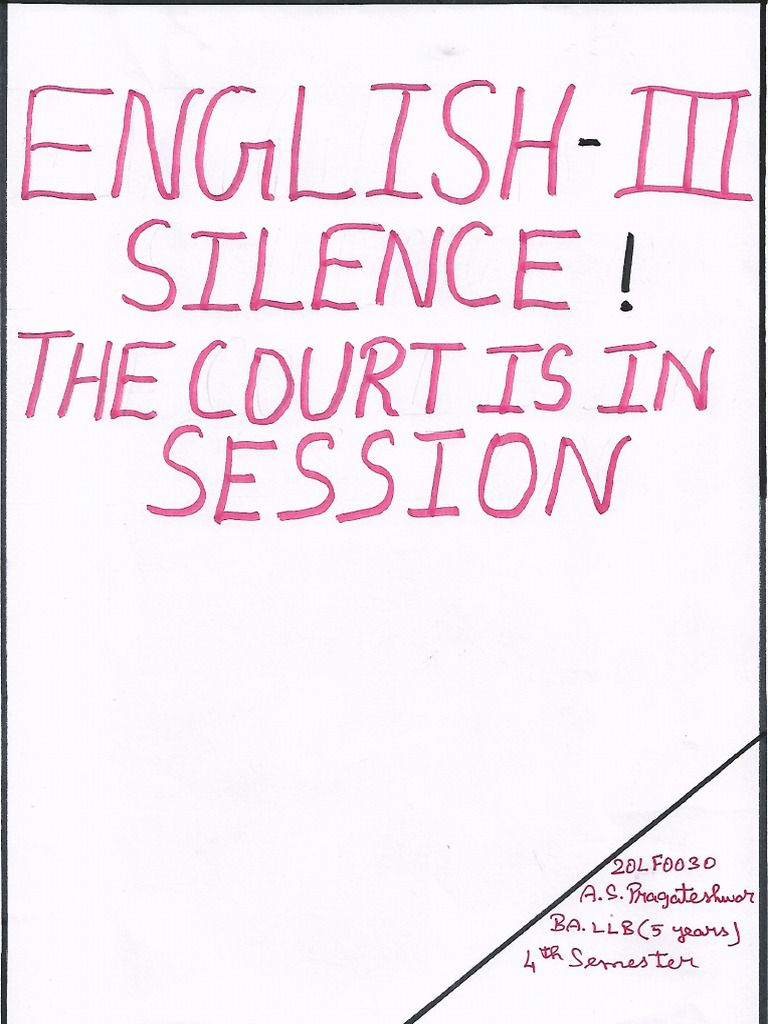 ENGLISH-III
SILENCE!
THE COURT IS IN
SESSION
20LF0030
A.S. Pragateshwar
BA.LLB(5 years)
4th Semester